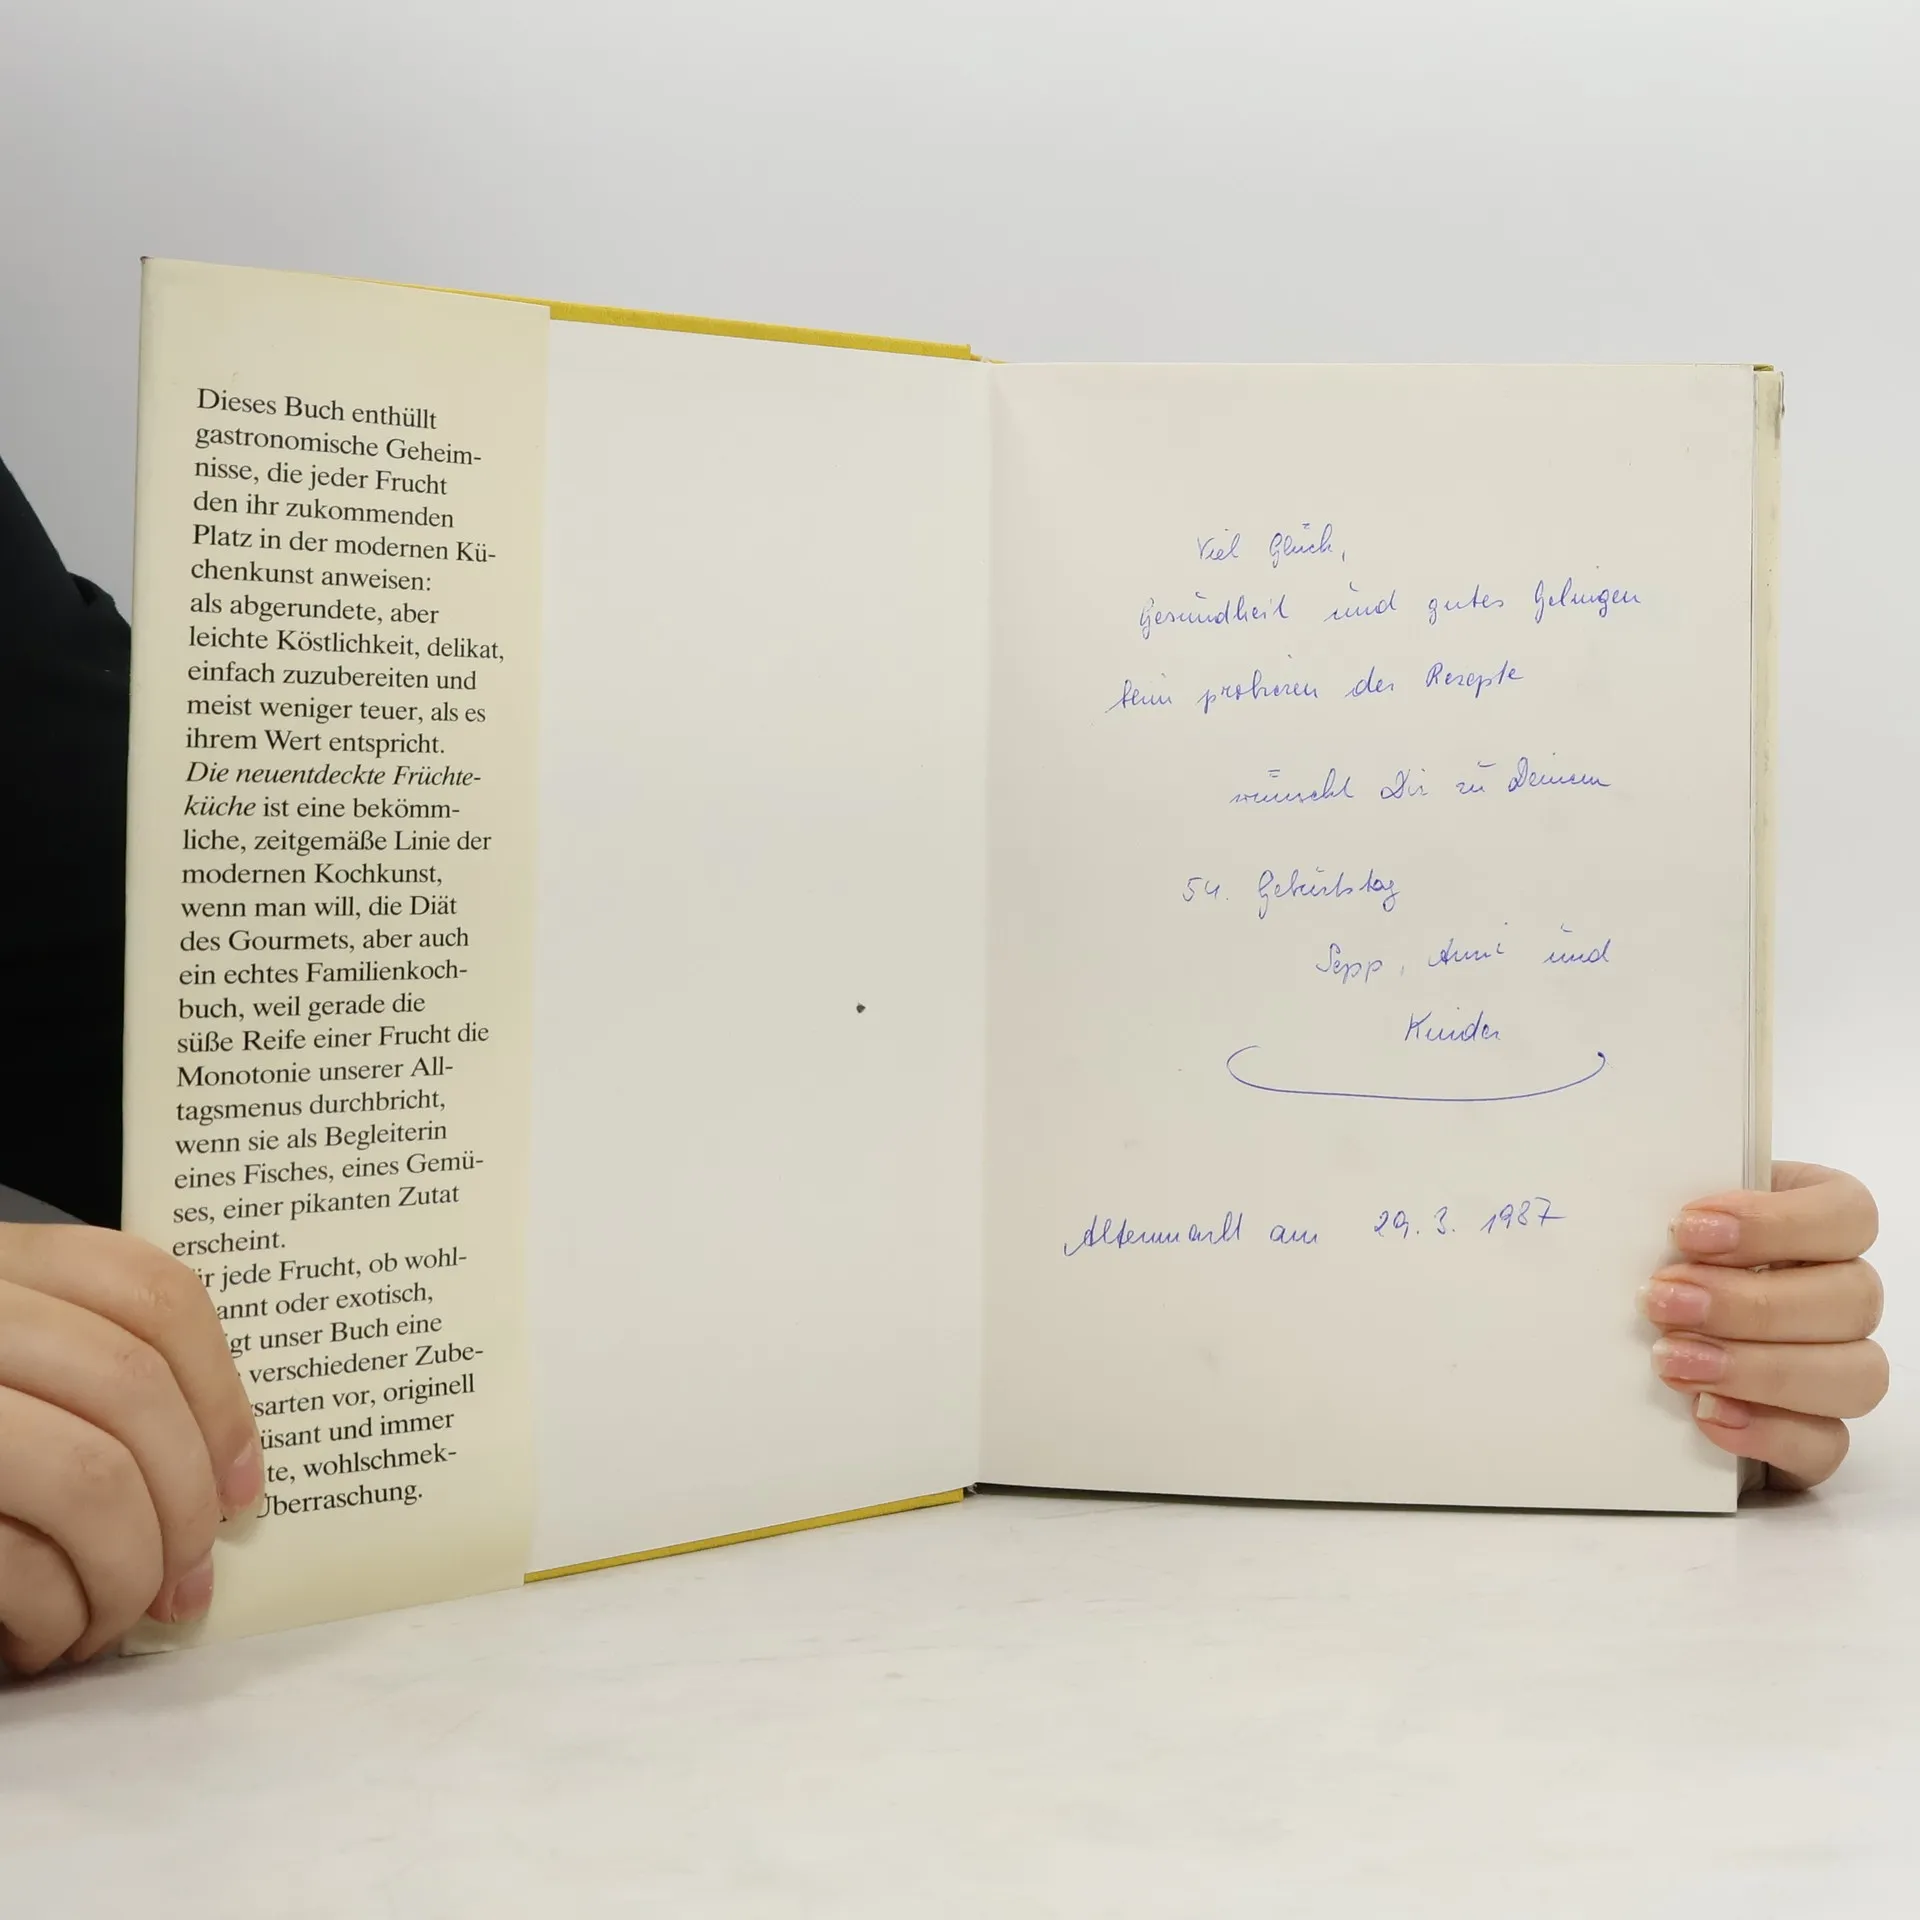 Dieses Buch enthüllt
gastronomische Geheim-
nisse, die jeder Frucht
den ihr zukommenden
Platz in der modernen Kü-
chenkunst anweisen:
als abgerundete, aber
leichte Köstlichkeit, delikat,
einfach zuzubereiten und
meist weniger teuer, als es
ihrem Wert entspricht.
Die neuentdeckte Früchte-
küche ist eine bekömm-
liche, zeitgemäße Linie der
modernen Kochkunst,
wenn man will, die Diät
des Gourmets, aber auch
ein echtes Familienkoch-
buch, weil gerade die
süße Reife einer Frucht die
Monotonie unserer All-
tagsmenus durchbricht,
wenn sie als Begleiterin
eines Fisches, eines Gemü-
ses, einer pikanten Zutat
erscheint.
jede Frucht, ob wohl-
annt oder exotisch,
gt unser Buch eine
verschiedener Zube-
sarten vor, originell
üsant und immer
te, wohlschmek-
Überraschung.
Viel Glück,
Gesundheit und gutes Gelingen
beim probieren der Rezepte
wünscht Dir zu Deinem
54. Geburtstag
Sepp, Anni und
Kinder
Altenmarkt am 29. 3. 1987